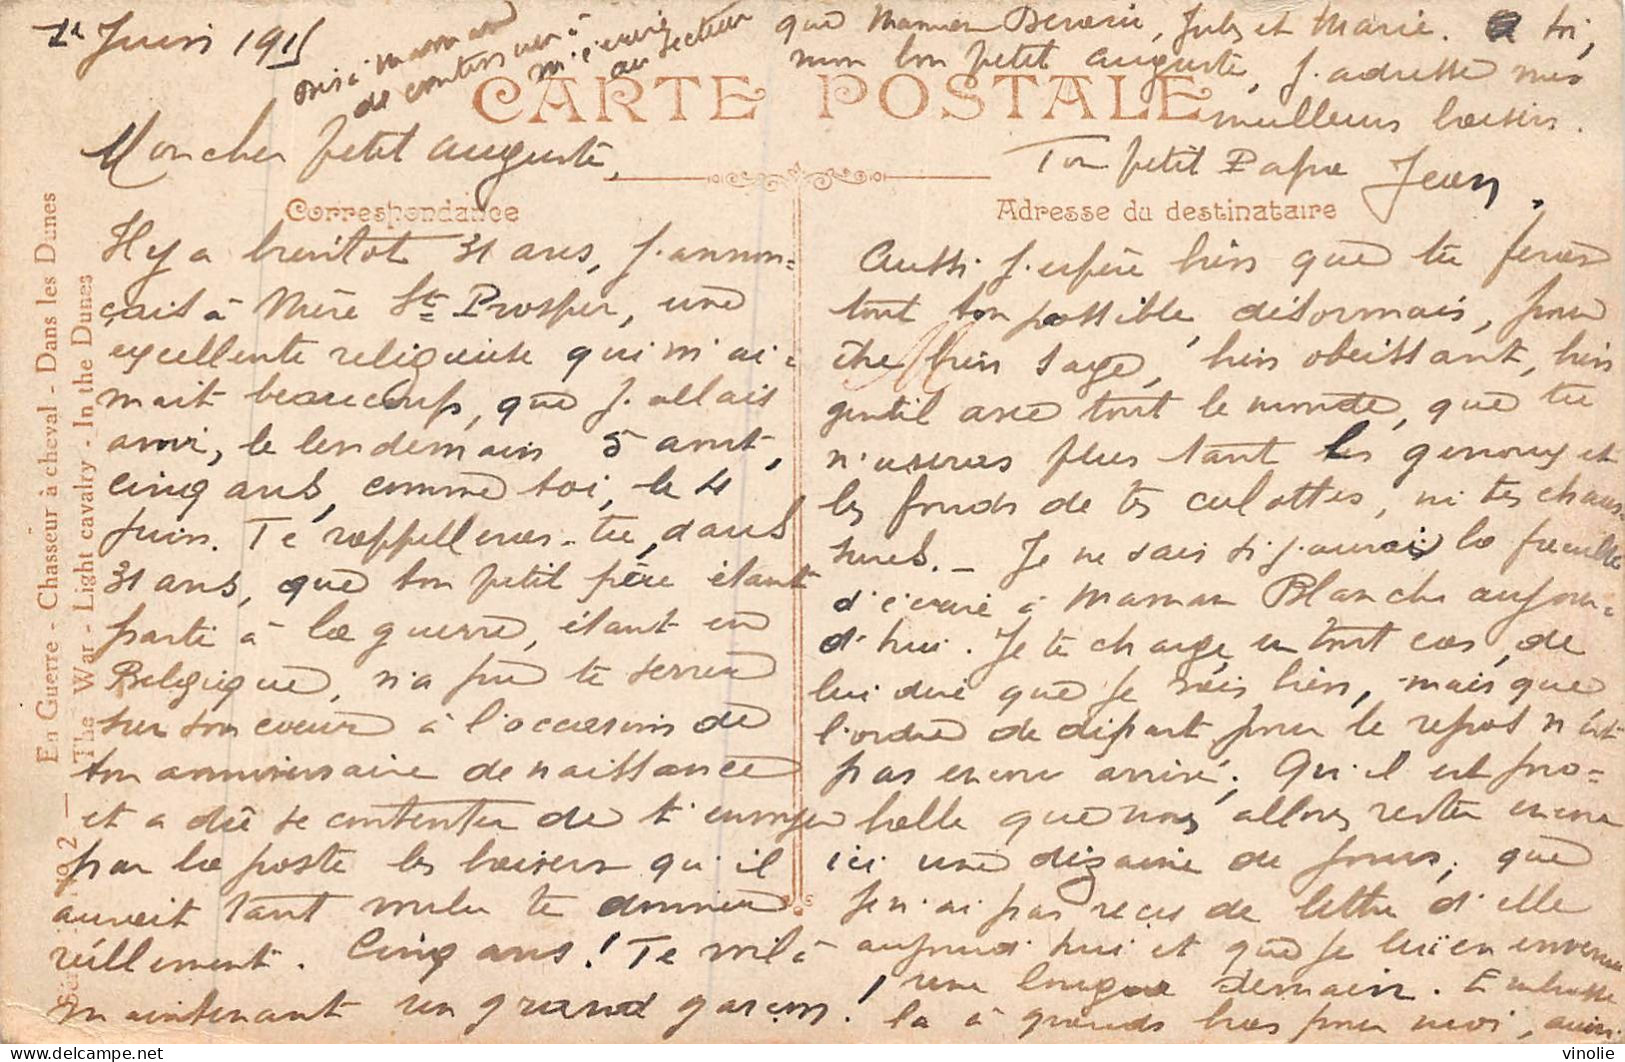 Juin 1915
Dis à maman
de continuer à
m'écrire
au secteur
CARTE POSTALE
Mon cher petit Auguste,
Correspondance
Il y a bientôt 31 ans, j'annon=
çais à Mère St Prosper, une
excellente religieuse qui m'ai=
mait beaucoup, que j'allais
avoir, le lendemain 5 août,
cinq ans, comme toi, le 4
Juin. Te rappelleras-tu, dans
31 ans, que ton petit père étant
parti à la guerre, étant en
Belgique, n'a pu te serrer
sur son cœur à l'occasion de
ton anniversaire de naissance
et a dû se contenter de t'envoyer
par la poste les baisers qu'il
aurait tant voulu te donner
réellement. Cinq ans! Te voilà
maintenant un grand garçon!
Adresse du destinataire
Aussi j'espère bien que tu feras
tout ton possible, désormais, pour
être bien sage, bien obéissant, bien
gentil avec tout le monde, que tu
n'useras plus tant les genoux et
les fonds de tes culottes, ni tes chaus-
sures. _ Je ne sais si j'aurai la
d'écrire à Maman Blanche aujour=
d'hui. Je te charge, en tout cas, de
lui dire que je vais bien, mais que
l'ordre de départ pour le repos n'est
pas encore arrivé; Qu'il est pro=
bable que nous allons rester encore
ici une dizaine de jours; que
je n'ai pas reçu de lettre d'elle
aujourd'hui et que je lui en enverrai
une longue demain. Embrasse
la à grands bras pour moi, ainsi
que Maman, Jules et Marie. A toi,
mon bon petit Auguste, j'adresse mes
meilleurs baisers.
Ton petit Papa Jean.
2 — En Guerre - Chasseur à cheval - Dans les Dunes
The War - Light cavalry - In the Dunes
vinolie